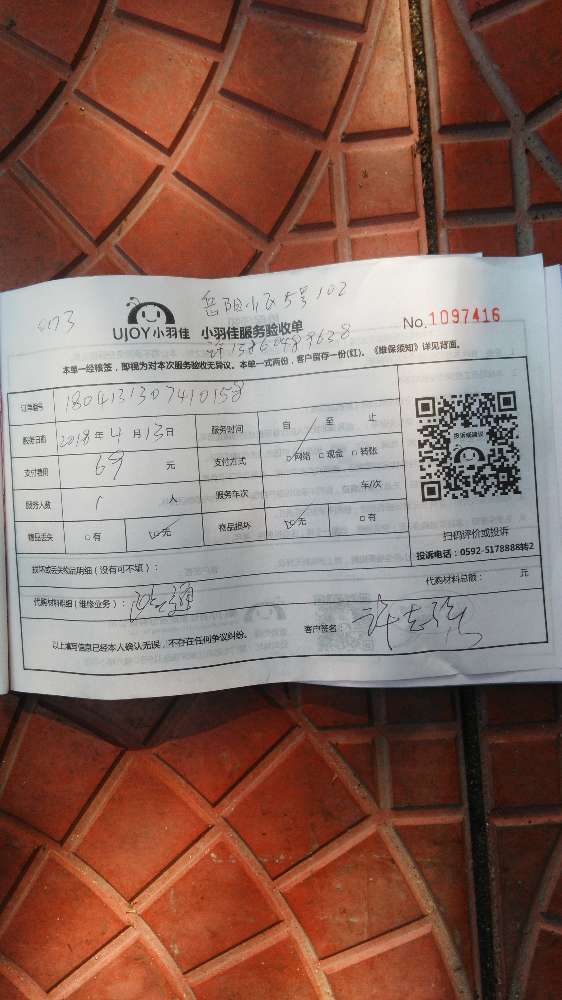 073
岳阳小区5号102
UJOY小羽佳 小羽佳服务验收单
No.1097416
许
本单一经核签，即视为对本次服务验收无异议。本单一式两份，客户留存一份(红)。《维保须知》详见背面。
订单编号 1804131307410158
服务日期 2018年4月13日 服务时间 自 至 止
支付费用 69 元 支付方式 □网络 □现金 □转账
服务人数 1 人 服务车次 车/次
物品丢失 □有 ☑无 物品损坏 ☑无 □有
投诉或建议
扫码评价或投诉
投诉电话：0592-5178888转2
损坏或丢失物品明细（没有可不填）：
代购材料明细（维修业务）： 代购材料总额： 元
以上填写信息已经本人确认无误，不存在任何争议纠纷。 客户签名：许志强